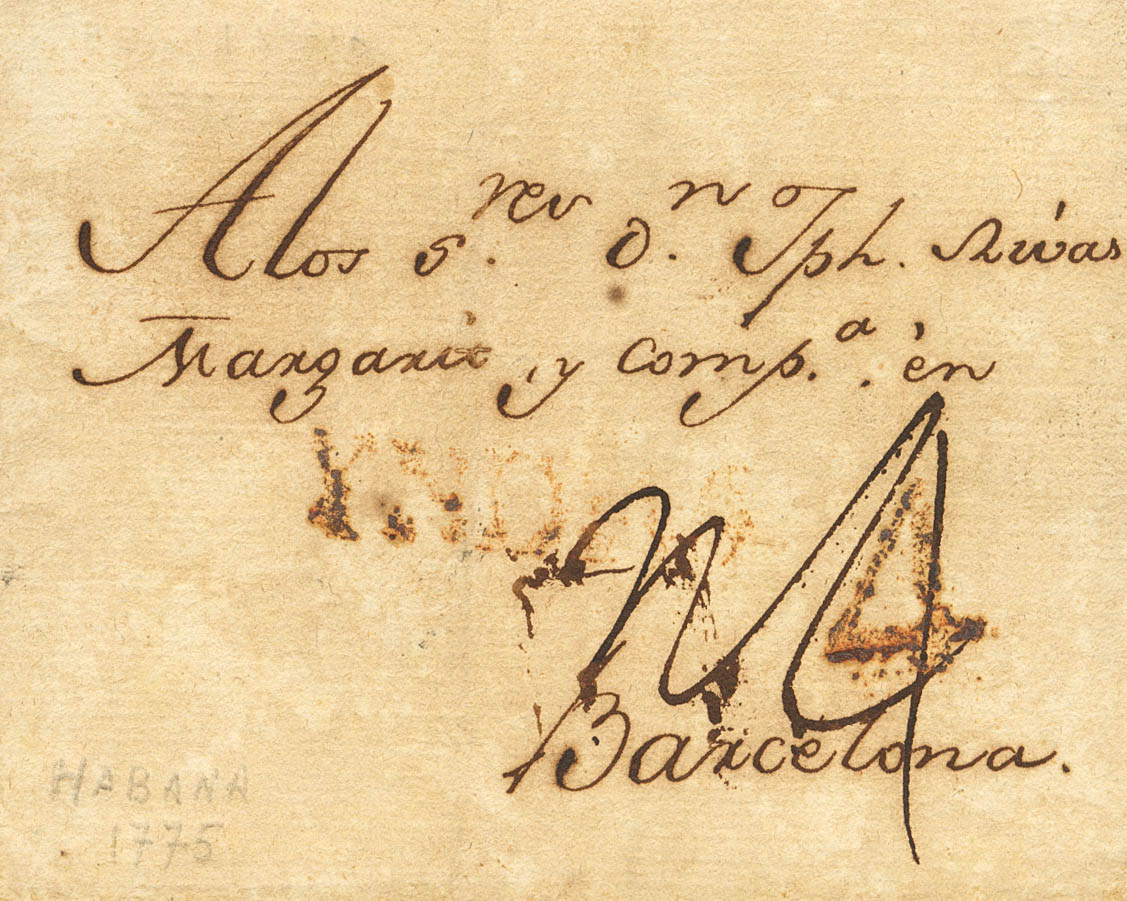 A los S.res D.n Jph. Rivas
Margarit y Comp.a en
YNDIAS
N4
4
Barcelona.
HABANA
1775